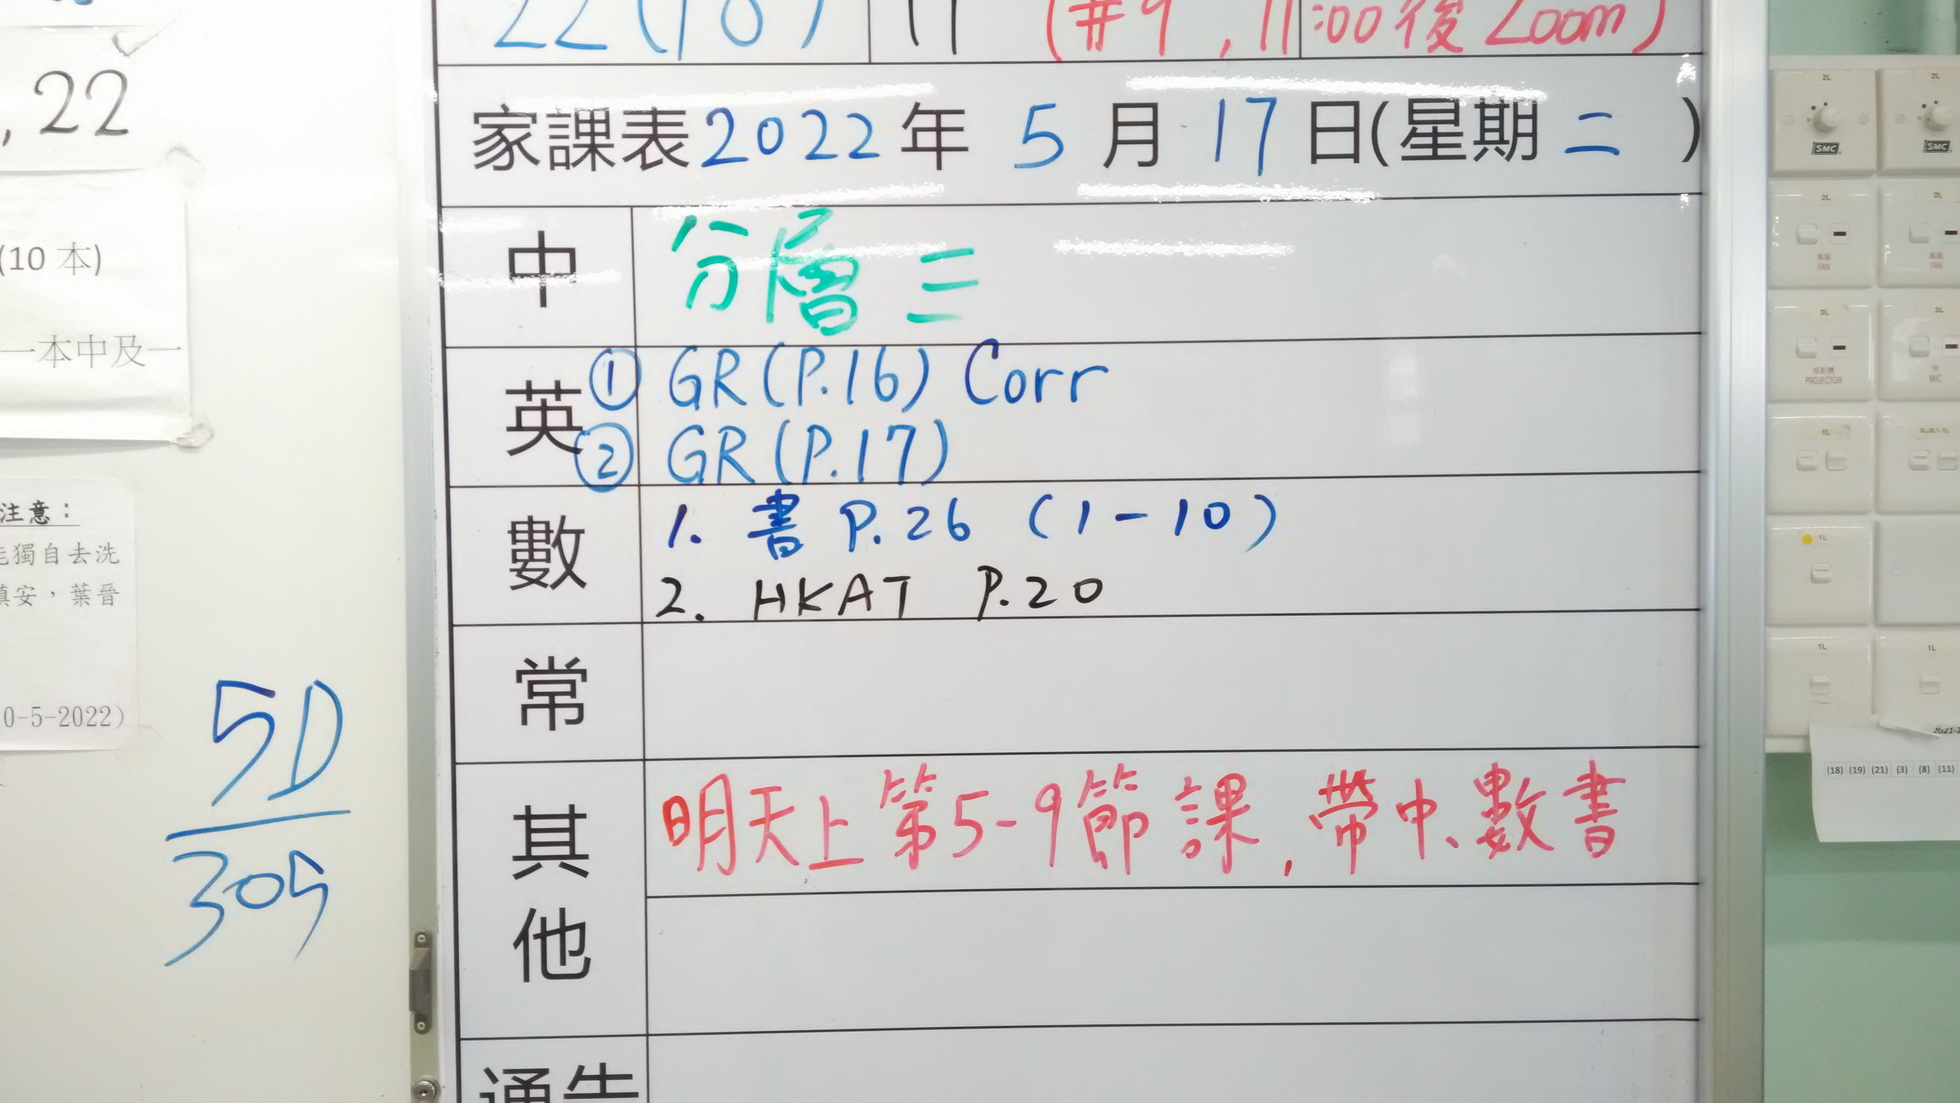 22(18) 11 (#9, 11:00後 Zoom)
, 22
家課表 2022 年 5 月 17 日(星期 二 )
(10 本)
一本中及一
中 分層 三
英 ① GR (P.16) Corr
② GR (P.17)
數 1. 書 P.26 (1-10)
2. HKAT P.20
注意：
獨自去洗
安，葉晉
0-5-2022)
常
5D
309
其他 明天上第5-9節課, 帶中、數書
通告
SMC SMC
2L 2L
風扇 風扇
FAN FAN
3L 3L
投影機
PROJECTOR MIC
1L
1L
1L 1L
(18) (19) (21) (3) (8) (11)